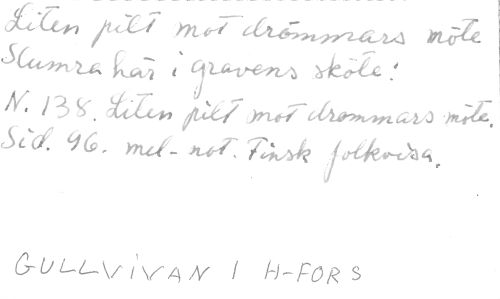 Liten pilt mot drömmars möte
Slumra här i gravens sköte!
N. 138. Liten pilt mot drommars möte.
Sid. 96. mel-not. Finsk folkvisa.
GULLVIVAN I H-FORS